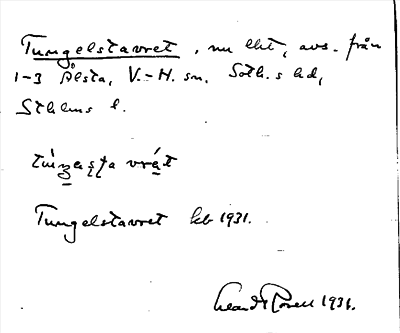 Tungelstavret, nu lht, avs. från
1-3 Ålsta, V.-H. sn, Soth.s hd,
Sthlms l.
tuṉgaṣta vrát
Tungelstavret kb 1931.
Rosell 1931.